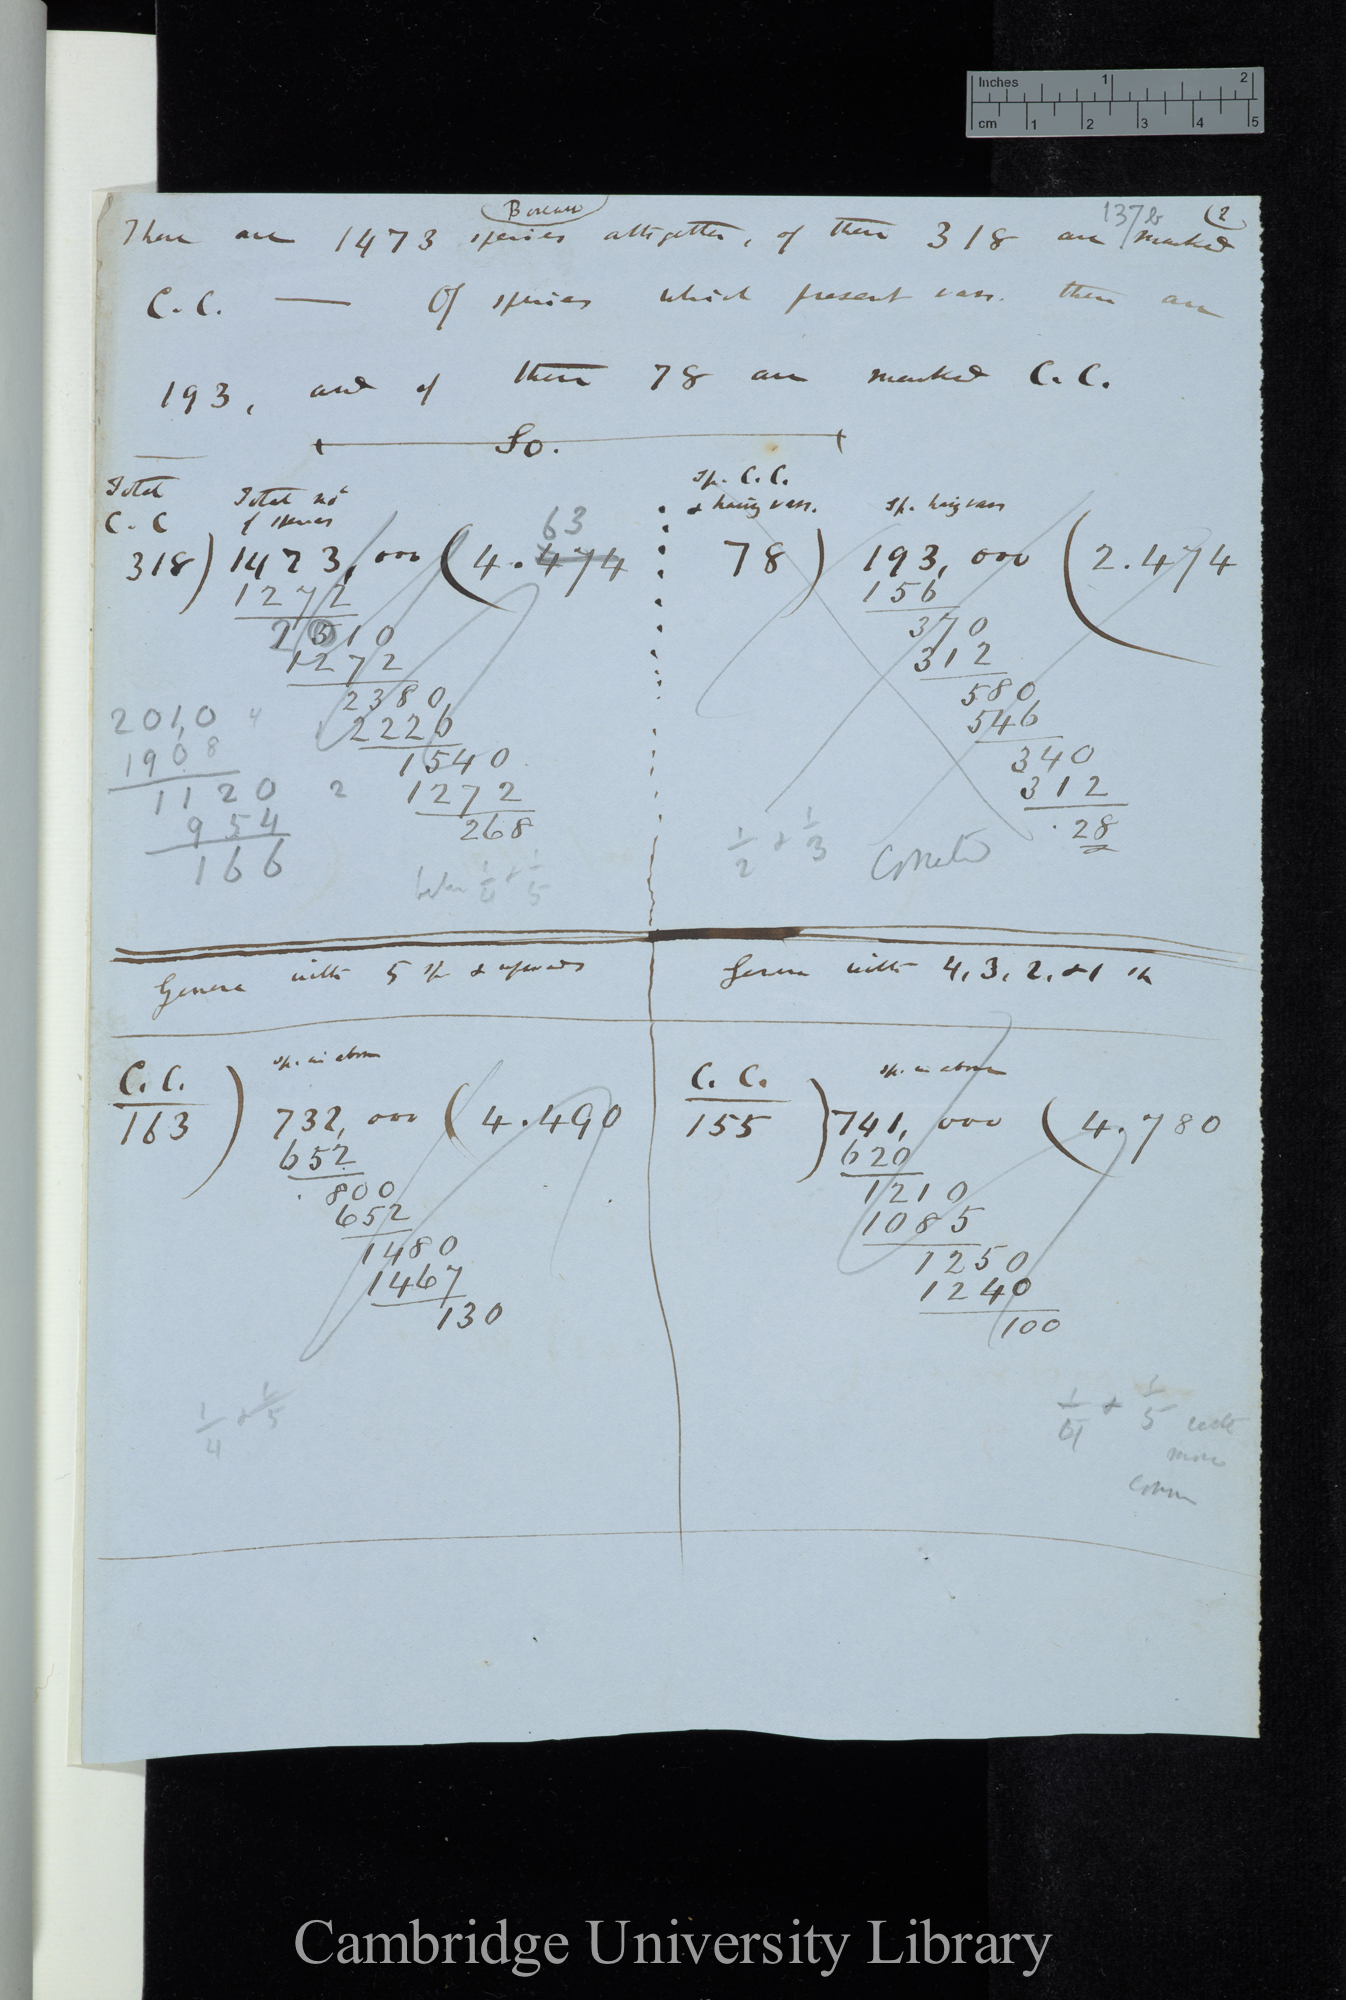 Inches 1 2
cm 1 2 3 4 5
Boreau
137b (2
There are 1473 species altogether, of these 318 are marked
C.C. — Of species which present vars. there are
193, and of these 78 are marked C.C.
So.
Total
C.C
Total no
of species
63
318) 1473,000 (4.474
1272
2010
1272
2380
2226
1540
1272
268
2010 4
1908
1120 2
954
166
1/4 & 1/5
sp. C.C.
& having vars.
sp. having vars
78) 193,000 (2.474
156
370
312
580
546
340
312
28
1/2 & 1/3
Correct
Genera with 5 sp & upwards
Genera with 4, 3, 2, & 1 sp
C.C.
sp. in above
163) 732,000 (4.490
652
800
652
1480
1467
130
1/4 & 1/5
C. C.
sp. in above
155) 741,000 (4.780
620
1210
1085
1250
1240
100
& 1/5
more
Cambridge University Library